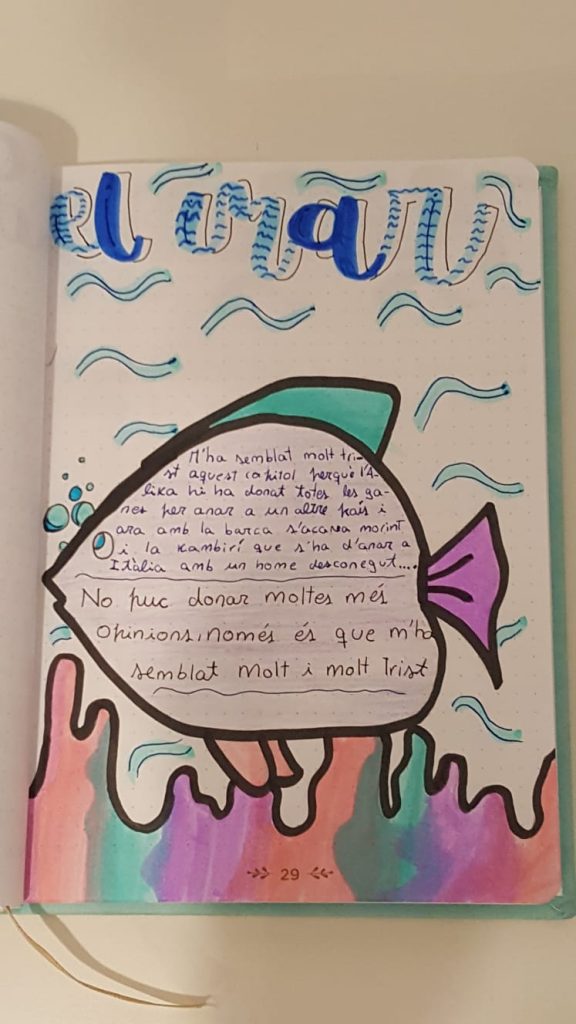 el mar
M'ha semblat molt tri-
st aquest capítol perquè l'A-
lika hi ha donat totes les ga-
nes per anar a un altre país i
ara amb la barca s'acava morint
i la Kambirí que s'ha d'anar a
Itàlia amb un home desconegut....
No puc donar moltes més
opinions, només és que m'ha
semblat molt i molt Trist
29